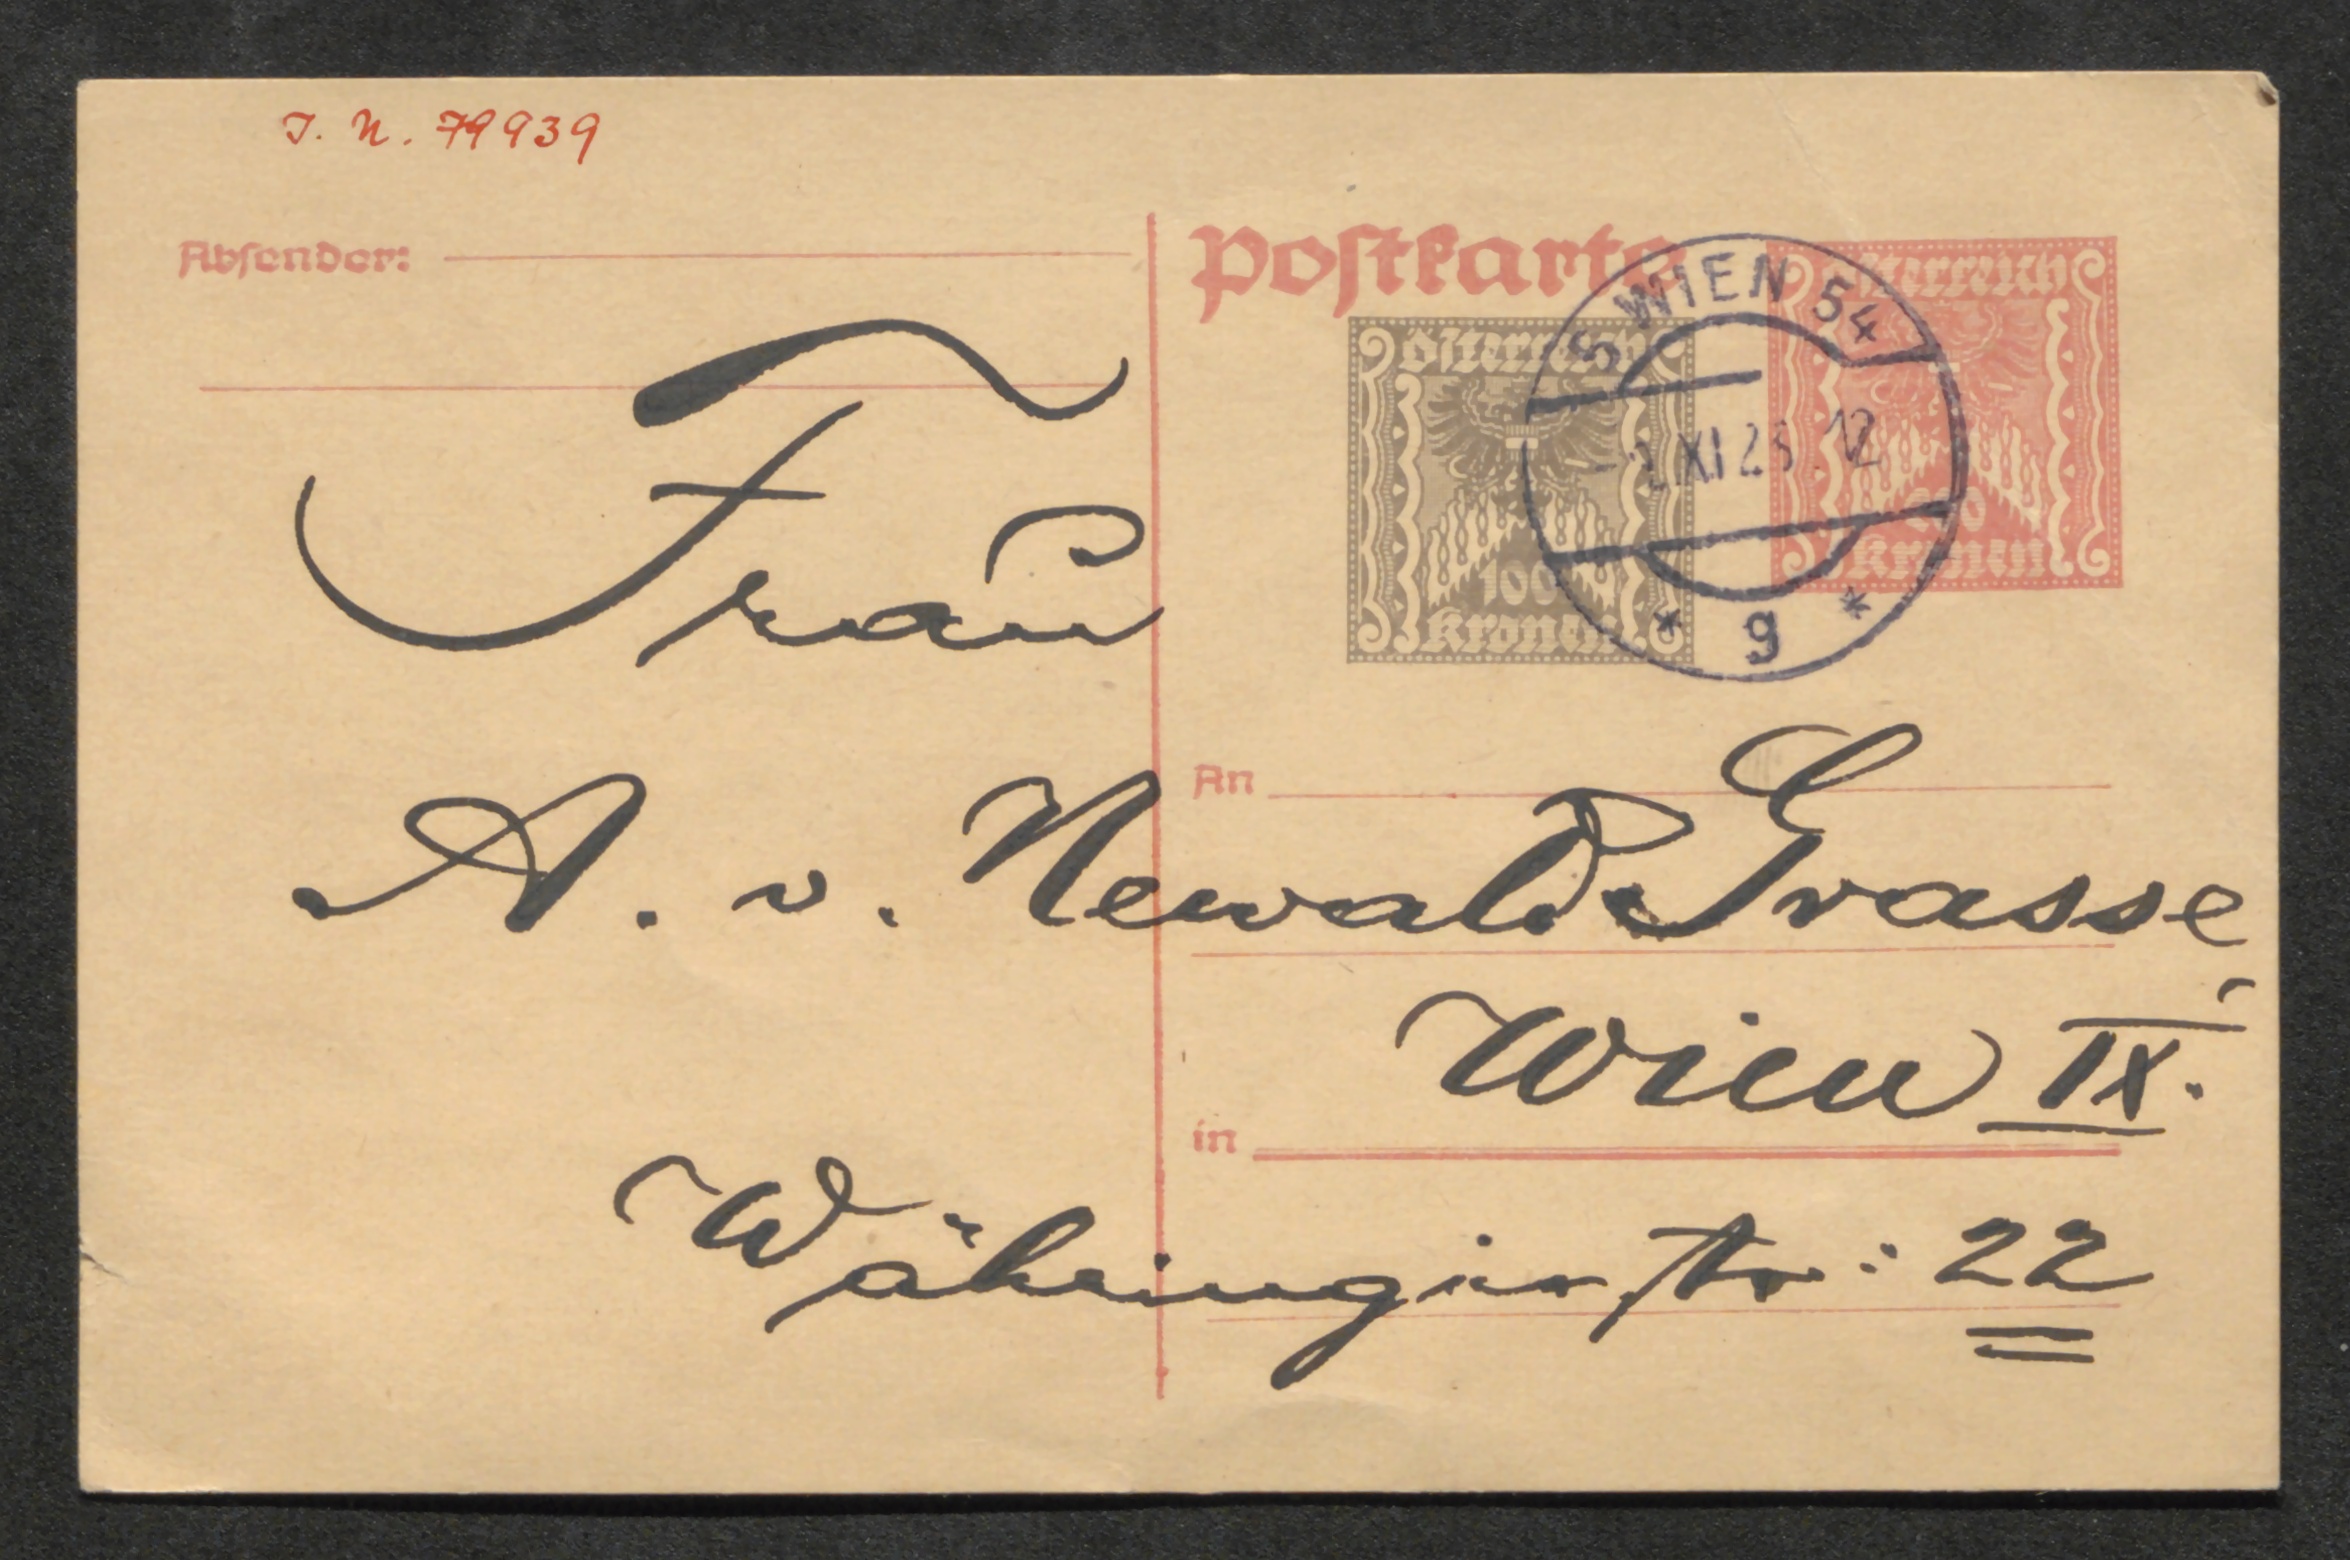 J. N. 79939
Absender:
Postkarte
Österreich
100
Kronen
Österreich
200
Kronen
5 WIEN 54
XI 23 12
* g *
Frau
An
A. v. Newald Grasse
Wien IX.
in
Währingerstr: 22